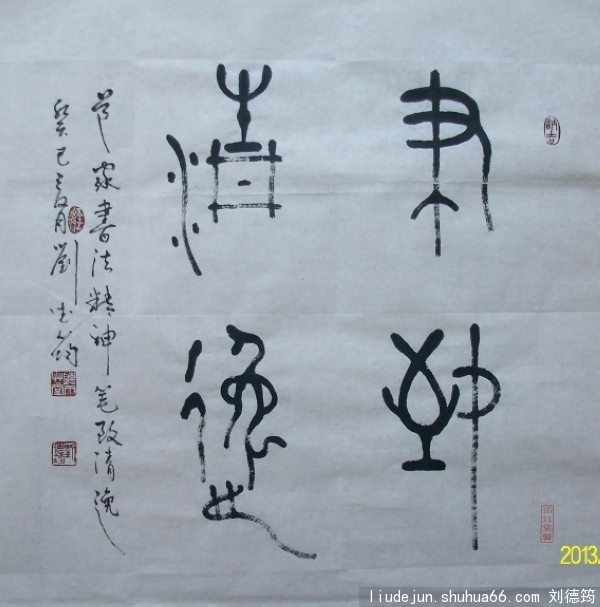 聿致
清逸
家書法精神笔致清逸
癸巳之夏月劉德筠
2013.
liudejun.shuhua66.com 刘德筠